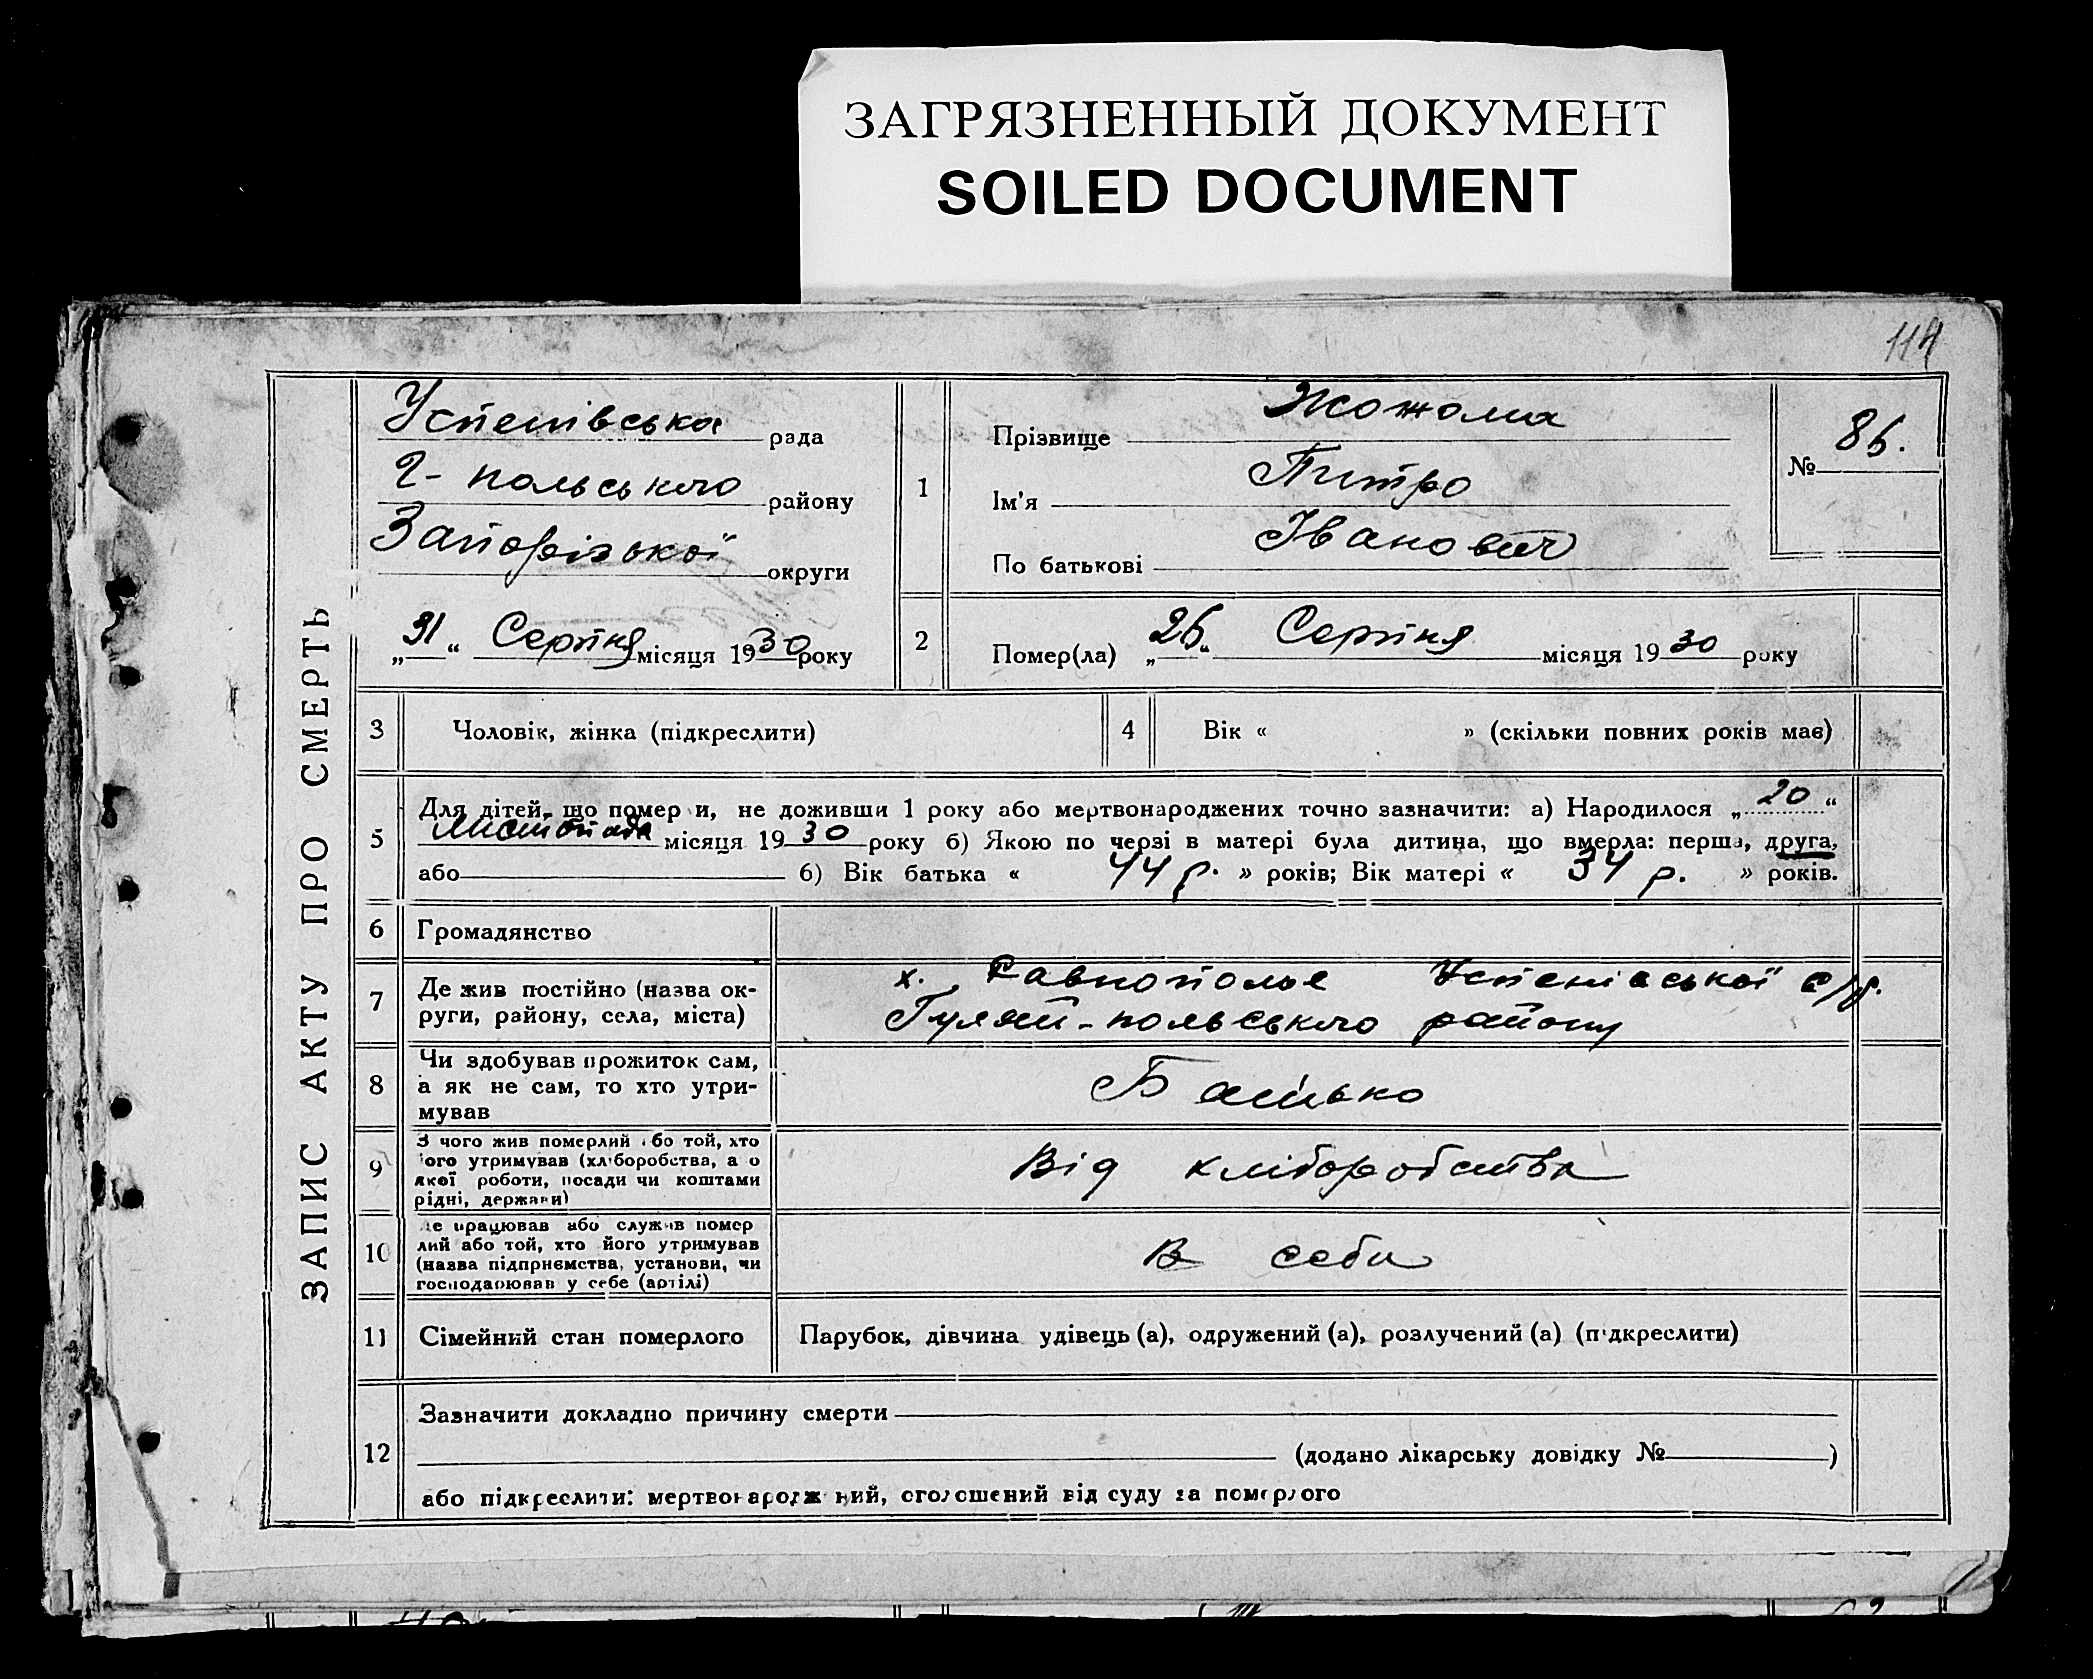 ЗАГРЯЗНЕННЫЙ ДОКУМЕНТ
SOILED DOCUMENT
114
ЗАПИС АКТУ ПРО СМЕРТЬ
Успенівська рада
Г-польського району
Запорізької округи
„31“ Серпня місяця 1930 року
1
Прізвище Жожома
Ім'я Питро
По батькові Іванович
№ 86.
2
Помер(ла) „26“ Серпня місяця 1930 року
3 Чоловік, жінка (підкреслити)
4 Вік « » (скільки повних років має)
5
Для дітей, що померли, не доживши 1 року або мертвонароджених точно зазначити: а) Народилося „20“
Листопада місяця 1930 року б) Якою по черзі в матері була дитина, що вмерла: перша, друга,
або б) Вік батька « 44 р. » років; Вік матері « 34 р. » років.
6 Громадянство
7 Де жив постійно (назва ок-
руги, району, села, міста)
х. Равнополье Успенівської с/р.
Гуляй-польського району
8 Чи здобував прожиток сам,
а як не сам, то хто утри-
мував
Батько
9 З чого жив померлий або той, хто
його утримував (хліборобства, а о
якої роботи, посади чи коштами
рідні, держави)
Від хліборобства
10 Де працював або служив помер
лий або той, хто його утримував
(назва підприємства, установи, чи
господарював у себе (артілі)
В себи
11 Сімейний стан померлого
Парубок, дівчина удівець (а), одружений (а), розлучений (а) (підкреслити)
12
Зазначити докладно причину смерти
(додано лікарську довідку № )
або підкреслити: мертвонароджений, оголошений від суду за померлого